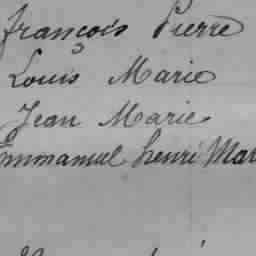 françois Pierre
Louis Marie
Jean Marie
Emmanuel henri Mar